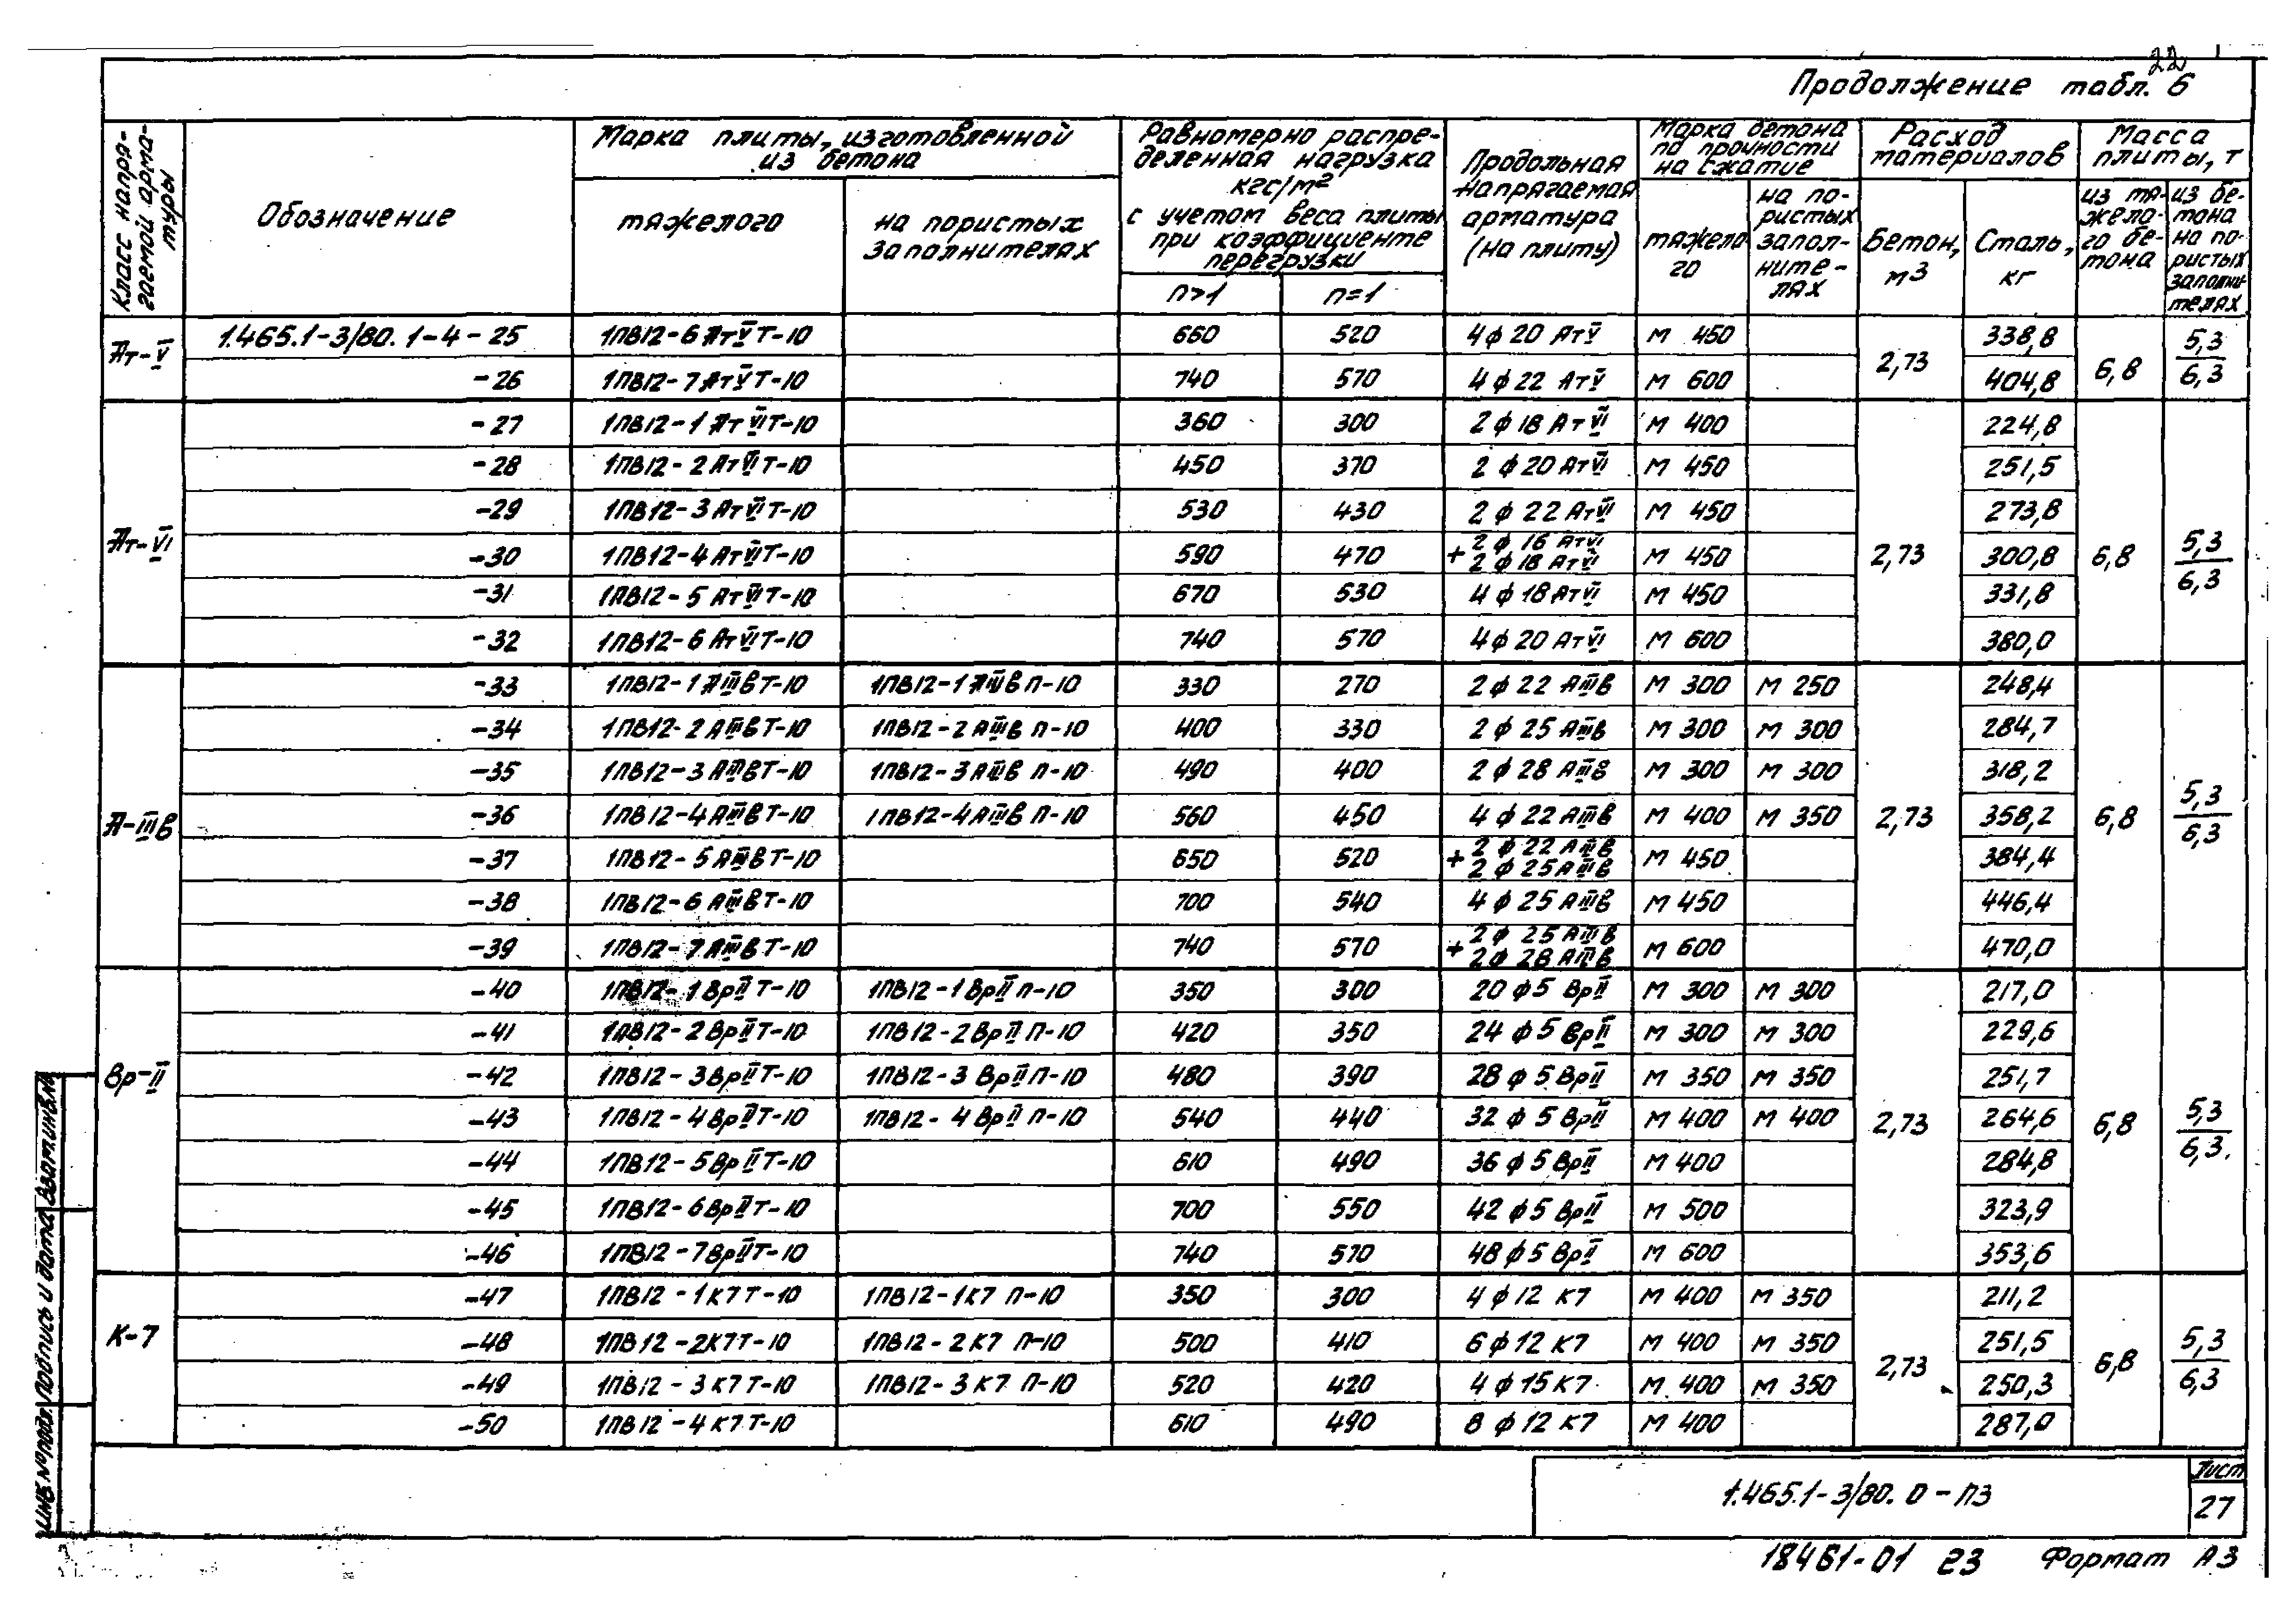 22
Продолжение табл. 6
Класс напря-
гаемой арма-
туры
Обозначение
Марка плиты, изготовленной
из бетона
тяжелого
на пористых
заполнителях
Равномерно распре-
деленная нагрузка
кгс/м²
с учетом веса плиты
при коэффициенте
перегрузки
n>1
n=1
Продольная
напрягаемая
арматура
(на плиту)
Марка бетона
по прочности
на сжатие
тяжело
го
на по-
ристых
запол-
ните-
лях
Расход
материалов
Бетон,
м3
Сталь,
кг
Масса
плиты, т
из тя-
жело-
го бе-
тона
из бе-
тона
на по-
ристых
заполни-
телях
Ат-V
1.465.1-3/80. 1-4-25 1ПВ12-6АтVТ-10 660 520 4ф20 АтV М 450 2,73 338,8 6,8 5,3/6,3
-26 1ПВ12-7АтVТ-10 740 570 4ф22 АтV М 600 404,8
Ат-VI
-27 1ПВ12-1АтVIТ-10 360 300 2ф18 АтVI М 400 224,8
-28 1ПВ12-2АтVIТ-10 450 370 2ф20 АтVI М 450 251,5
-29 1ПВ12-3АтVIТ-10 530 430 2ф22 АтVI М 450 273,8
-30 1ПВ12-4АтVIТ-10 590 470 2ф16 АтVI + 2ф18 АтVI М 450 2,73 300,8 6,8 5,3/6,3
-31 1ПВ12-5АтVIТ-10 670 530 4ф18 АтVI М 450 331,8
-32 1ПВ12-6АтVIТ-10 740 570 4ф20 АтVI М 600 380,0
А-IIIв
-33 1ПВ12-1АIIIвТ-10 1ПВ12-1АIIIвП-10 330 270 2ф22 АIIIв М 300 М 250 248,4
-34 1ПВ12-2АIIIвТ-10 1ПВ12-2АIIIвП-10 400 330 2ф25 АIIIв М 300 М 300 284,7
-35 1ПВ12-3АIIIвТ-10 1ПВ12-3АIIIвП-10 490 400 2ф28 АIIIв М 300 М 300 318,2
-36 1ПВ12-4АIIIвТ-10 1ПВ12-4АIIIвП-10 560 450 4ф22 АIIIв М 400 М 350 2,73 358,2 6,8 5,3/6,3
-37 1ПВ12-5АIIIвТ-10 650 520 2ф22 АIIIв + 2ф25 АIIIв М 450 384,4
-38 1ПВ12-6АIIIвТ-10 700 540 4ф25 АIIIв М 450 446,4
-39 1ПВ12-7АIIIвТ-10 740 570 2ф25 АIIIв + 2ф28 АIIIв М 600 470,0
Вр-II
-40 1ПВ12-1ВрIIТ-10 1ПВ12-1ВрIIП-10 350 300 20ф5 ВрII М 300 М 300 217,0
-41 1ПВ12-2ВрIIТ-10 1ПВ12-2ВрIIП-10 420 350 24ф5 ВрII М 300 М 300 229,6
-42 1ПВ12-3ВрIIТ-10 1ПВ12-3ВрIIП-10 480 390 28ф5 ВрII М 350 М 350 251,7
-43 1ПВ12-4ВрIIТ-10 1ПВ12-4ВрIIП-10 540 440 32ф5 ВрII М 400 М 400 2,73 264,6 6,8 5,3/6,3
-44 1ПВ12-5ВрIIТ-10 610 490 36ф5 ВрII М 400 284,8
-45 1ПВ12-6ВрIIТ-10 700 550 42ф5 ВрII М 500 323,9
-46 1ПВ12-7ВрIIТ-10 740 570 48ф5 ВрII М 600 353,6
К-7
-47 1ПВ12-1К7Т-10 1ПВ12-1К7 П-10 350 300 4ф12 К7 М 400 М 350 211,2
-48 1ПВ12-2К7Т-10 1ПВ12-2К7 П-10 500 410 6ф12 К7 М 400 М 350 2,73 251,5 6,8 5,3/6,3
-49 1ПВ12-3К7Т-10 1ПВ12-3К7 П-10 520 420 4ф15 К7 М 400 М 350 250,3
-50 1ПВ12-4К7Т-10 610 490 8ф12 К7 М 400 287,0
Инв. № подл. Подпись и дата Взам. инв. №
1.465.1-3/80. 0-ПЗ
Лист
27
18461-01 23 Формат А3